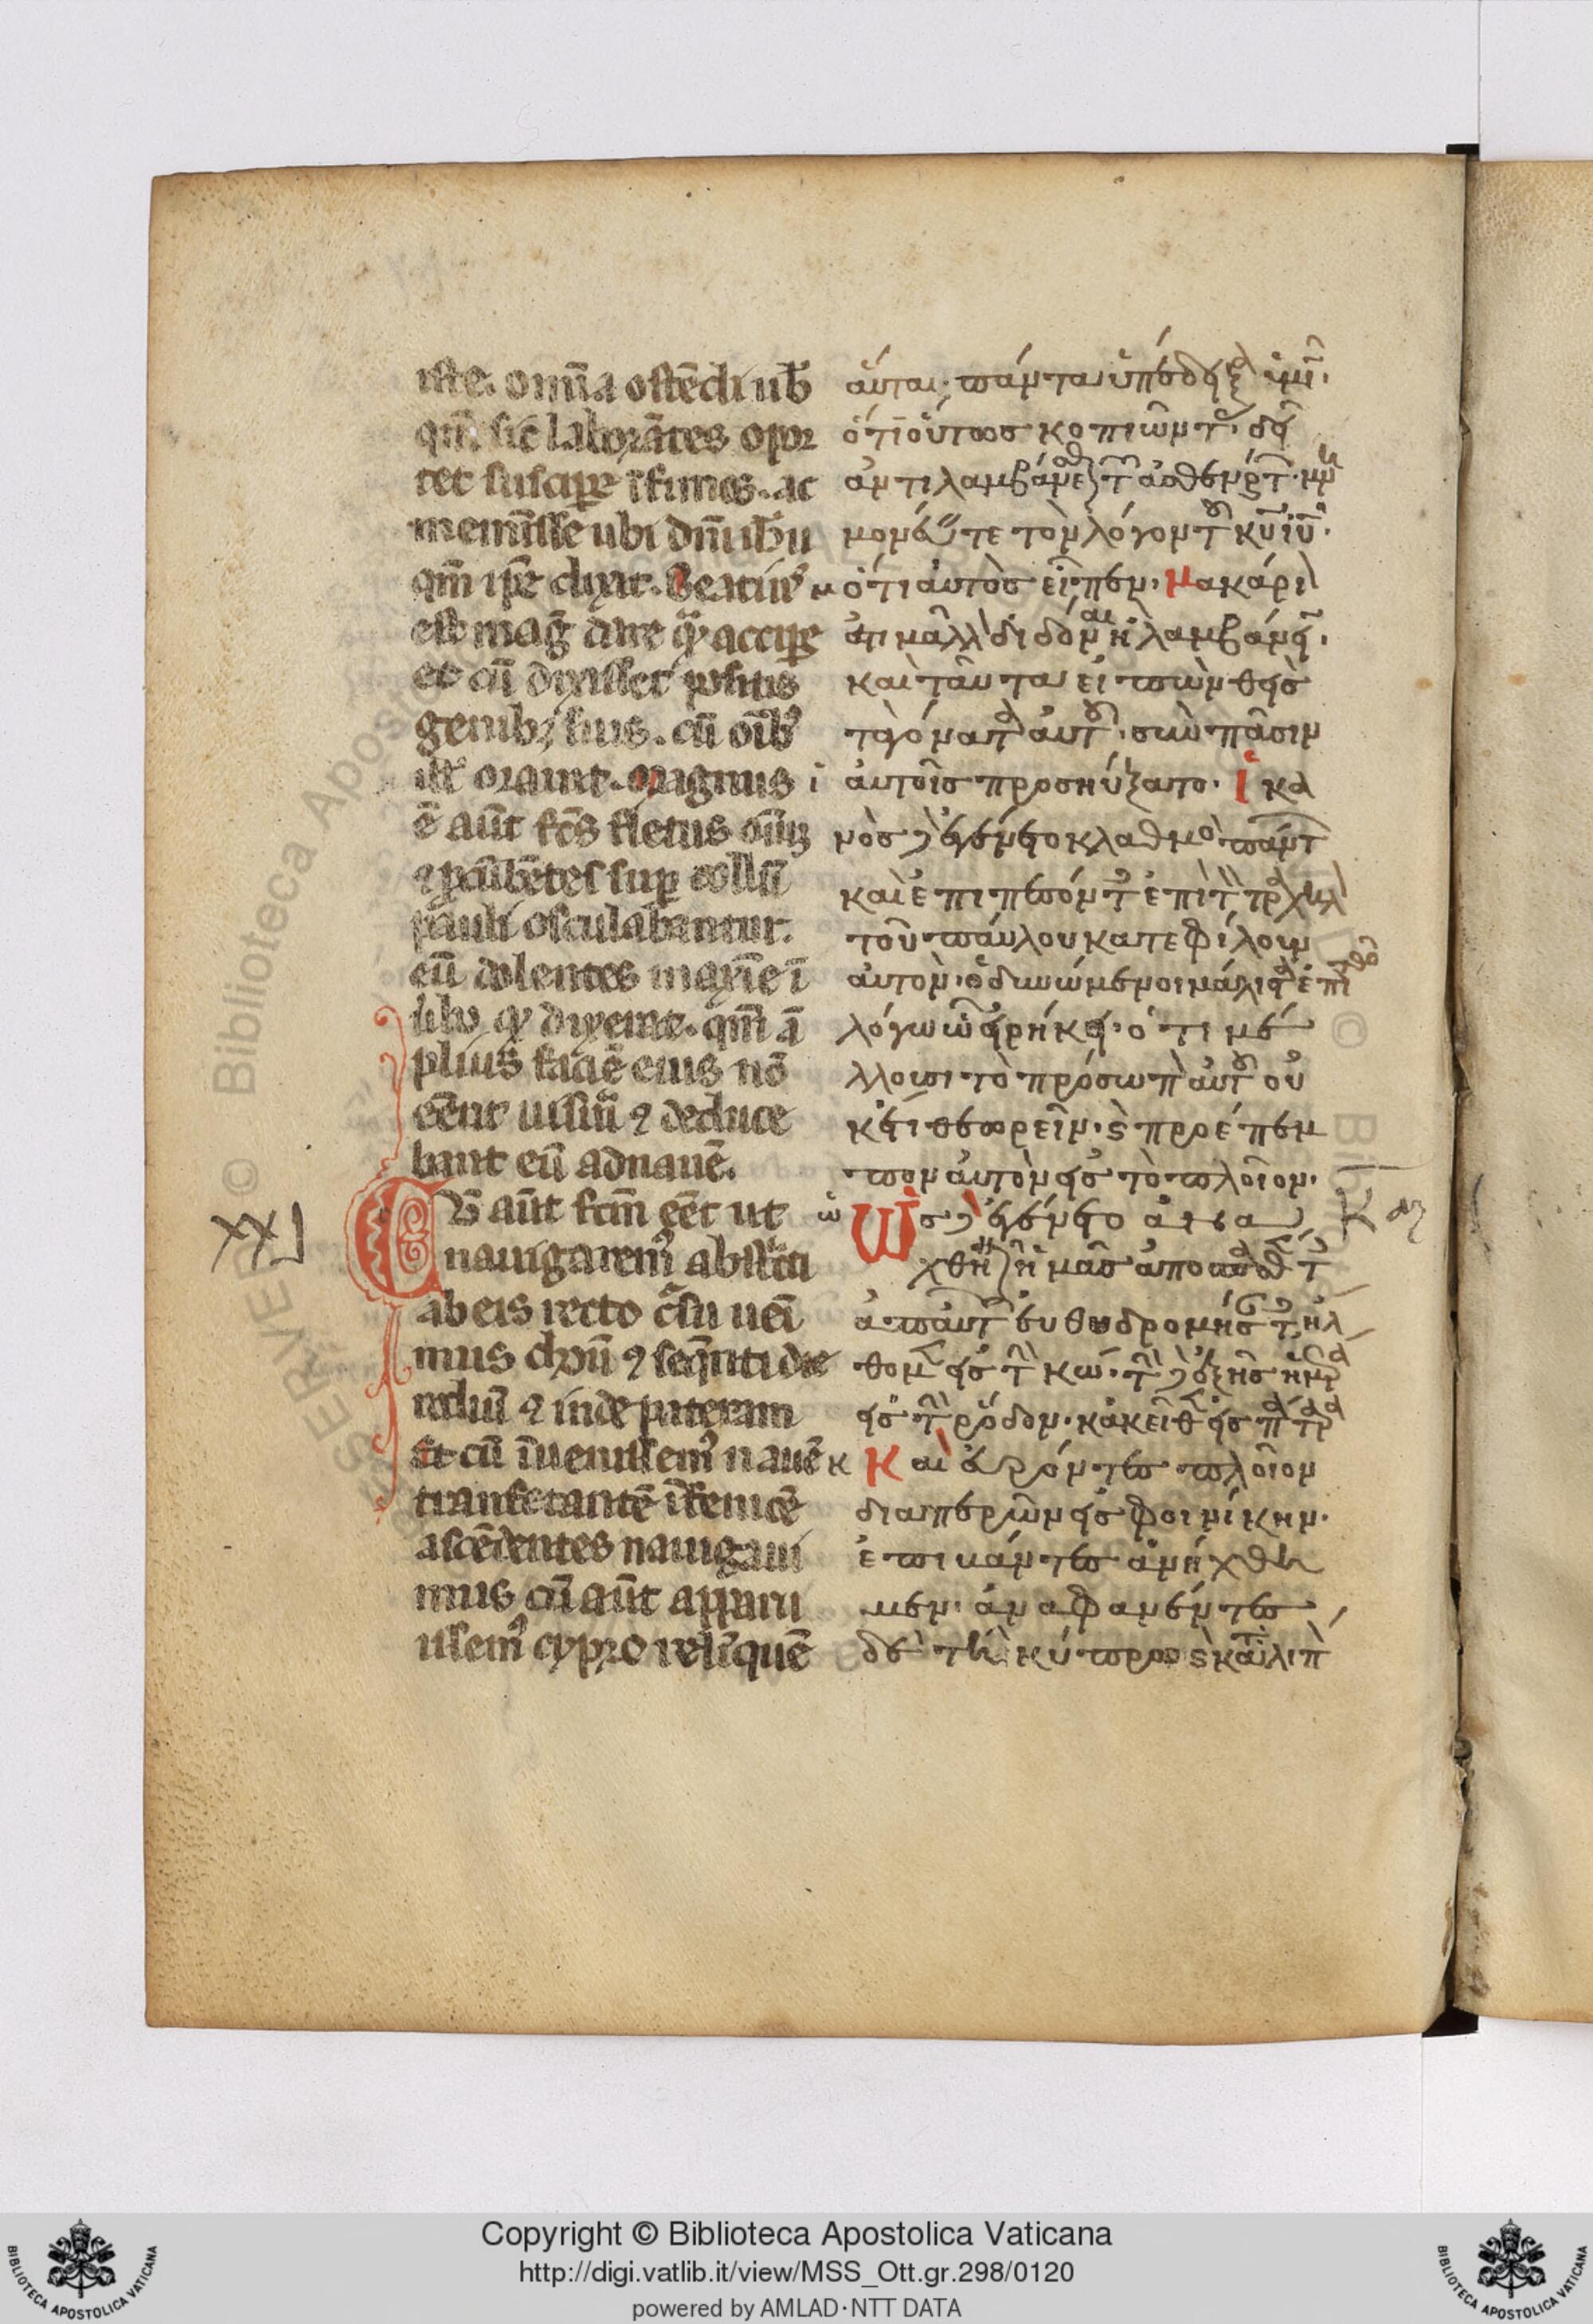 iste. omīa ostēdi uƀ
qm̄. sic laborātes opor
tet suscipe īfirmos. ac
meminīsse ubi dn̄i iħu
qm̄ ipe dixit. Beatius
est maḡ dare q̄ accipe
et cū dixisset positis
genibꝫ suis. cū oībꝰ
illꝭ orauit. Magnus
ē aūt fcs̄ fletus oīuꝫ
⁊ pcūbētes sup collū
pauli osculabantur.
eū dolentes maxīe ī
ubo qꝰ dixerat. qm̄ ā
plius faciē eius nō
eēnt uisuri ⁊ deduce
bant eū ad nauē.
XXI
CV̄ aūt fcm̄ eēt ut
nauigaremꝰ abstcti
ab eis recto cʳsu ueī
mus choū ⁊ seqn̄ti die
rodū ⁊ inde pateram
Et cū īuenissemꝰ nauē
transfetantē ī fenicē
ascēdentes nauigaui
mus cū aūt apparu
issemꝰ cypro relīquē
αὗται. πάντα ὑπέδειξα ὑμῖ.
ὅτι οὕτωσ κοπιῶντ δεῖ
ἀντιλαμβάνεσθαι τ ἀσθενούντ. μν
μονεύειτε τὸν λόγον τοῦ κυ ιυ.
ὅτι αὐτὸσ εἶπεν. Μακάρι
ἐστι μᾶλλ διδόναι ἢ λαμβάνει.
καὶ ταῦτα εἰπὼν θεὶσ
τὰ γόνατα αὐτοῦ. σὺν πᾶσιν
αὐτοῖσ προσηύξατο. Ἱκα
νὸσ δὲ ἐγένετο κλαθμὸ πάντ
καὶ ἐπιπεσόντ ἐπὶ τὸν τραχηλ
τοῦ παύλου κατεφίλουν
αὐτὸν. ὀδυνώμενοι μάλιστα ἐπὶ τῶ
λόγω ὧ εἰρήκει. ὅτι μέ
λλουσι τὸ πρόσωπ αὐτοῦ οὐ
κέτι θεωρεῖν. ς προέπεμ
πον αὐτὸν εἰσ τὸ πλοῖον.
Ὡσ δὲ ἐγένετο ἀνα
χθῆναι ἡμᾶσ ἀποσπασθ τ
ἀπ αὐτ εὐθυδρομήσ τ ἤλ
θομ εἰσ τ κω. τ δὲ ἑξῆσ ἡμρα
εἰσ τ ρόδον. κἀκεῖθ εἰσ πάτρα
Καὶ εὑρόντεσ πλοῖον
διαπερῶν εἰσ φοινίκην.
ἐπιβάντεσ ἀνήχθη
μεν. ἀναφανέντεσ
δὲ τῆ κύπρω ς καταλιπ
Copyright © Biblioteca Apostolica Vaticana
http://digi.vatlib.it/view/MSS_Ott.gr.298/0120
powered by AMLAD·NTT DATA
BIBLIOTECA APOSTOLICA VATICANA
BIBLIOTECA APOSTOLICA VATICANA